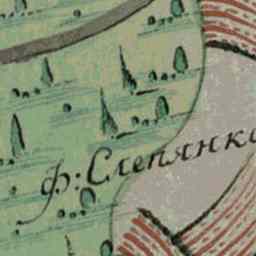 ф: Слепянка